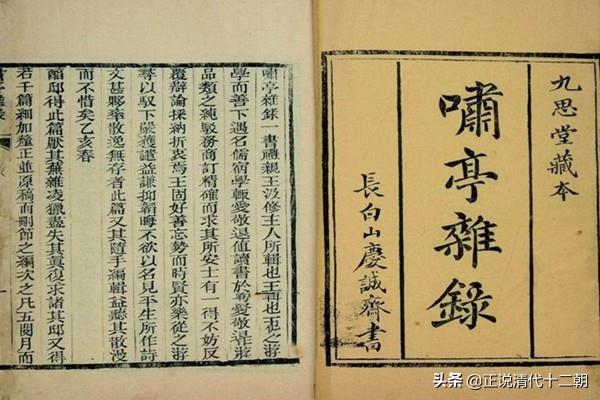 九思堂藏本
嘯亭雜錄
長白山慶誠齋書
嘯亭雜錄一書禮親王汲修主人所輯也王
學而善下遇名儒宿學輒愛敬退值讀書於
品類之純駁務商訂精確而求其所安士有一得不妨反
覆辯論採納折衷焉王固好善忘勢而時賢亦樂從之游
尋以馭下嚴獲譴益謙抑韜晦不欲以名見平生所作詩
文甚夥率散逸無存者此篇又其隨手編輯益聽其散漫
而不惜矣乙亥春
邸得此篇厭其蕪雜凌獵盡失其眞復求諸其邸又得
若干篇細加釐正並原稿而刪節之編次之凡五閱月而
头条 @正说清代十二朝